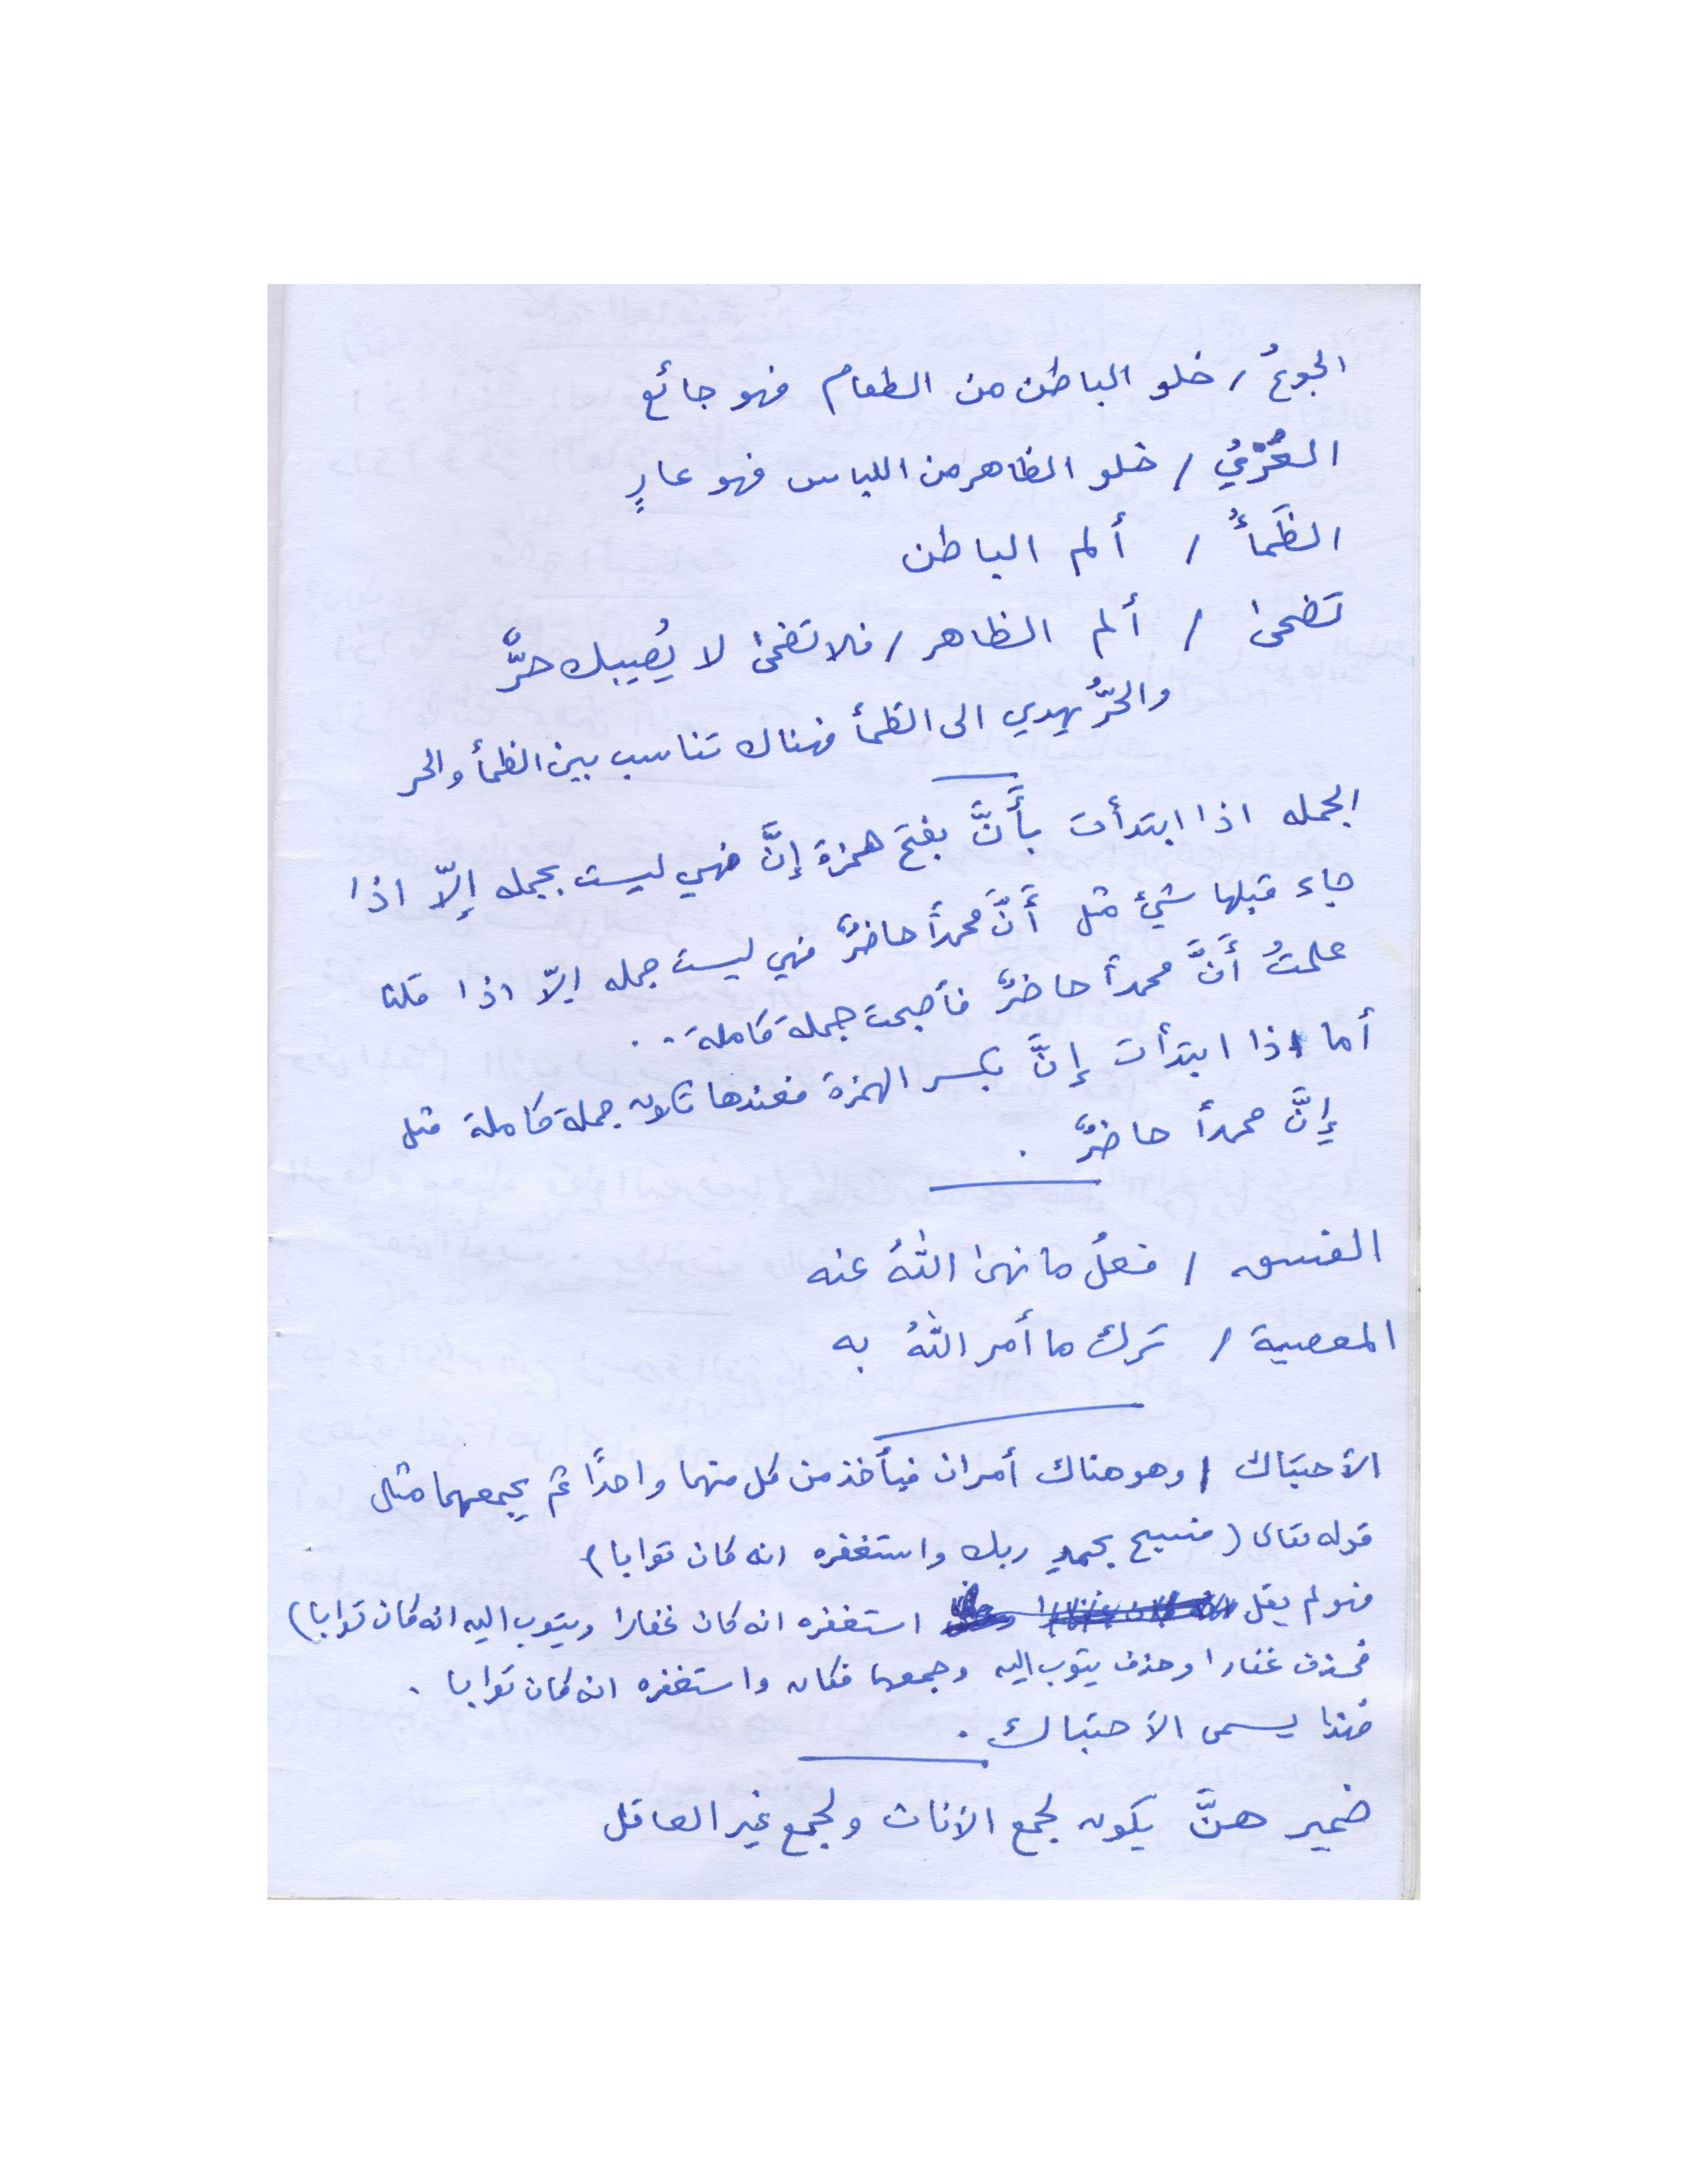 الجوعُ / خلو الباطن من الطعام فهو جائع
العُرْيُ / خلو الظاهر من اللباس فهو عارٍ
الظَمأُ / ألم الباطن
تضحىٰ / ألم الظاهر / فلا تضحىٰ لا يُصيبك حرٌّ
والحرُّ يهدي الى الظمأ فهناك تناسب بين الظمأ والحر
الجمله اذا ابتدأت بأَنَّ بفتح همزة إنَّ فهي ليست بجمله إلّا اذا
جاء قبلها شيئ مثل أَنَّ محمداً حاضرٌ فهي ليست جمله إلّا اذا قلنا
علمتُ أَنَّ محمداً حاضرٌ فأصبحت جملة كاملة . . .
أما اذا ابتدأت إنَّ بكسر الهمزة فعندها تكون جملة كاملة مثل
إنَّ محمداً حاضرٌ .
الفسق / فعلُ ما نهىٰ اللهُ عنه
المعصية / ترك ما أمر اللهُ به
الأحتباك / وهو هناك أمران فيأخذ من كل منهما واحدًا ثم يجمعهما مثل
قوله تعالى (فسبح بحمدِ ربك واستغفره انه كان توابا)
فهو لم يقل استغفره انه كان غفارا ويتوب اليه انه كان توابا)
فحذف غفارا وحذف يتوب اليه وجمعها فكان واستغفره انه كان توابا .
فهذا يسمى الأحتباك .
ضمير هنَّ يكون لجمع الأناث ولجمع غير العاقل